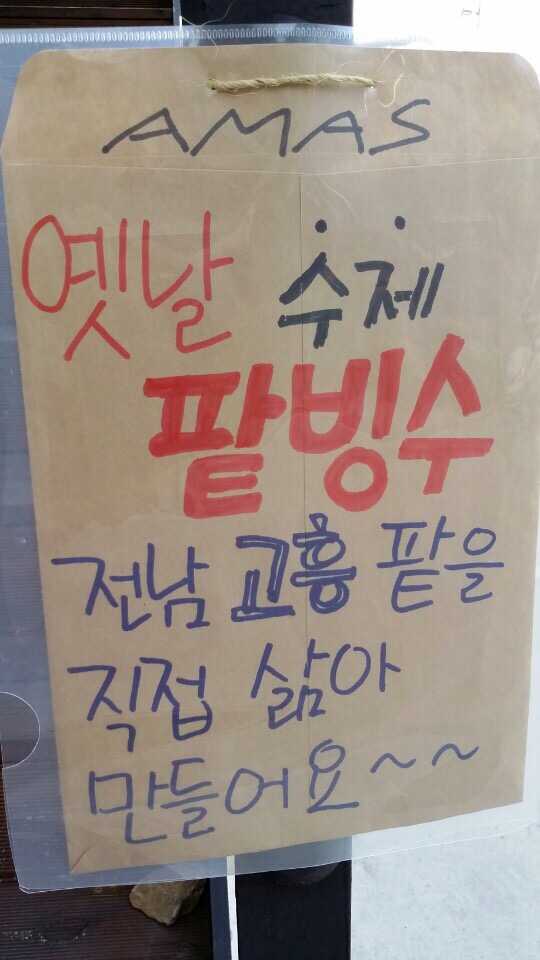 AMAS
옛날 수제
팥빙수
전남 고흥 팥을
직접 삶아
만들어요~~